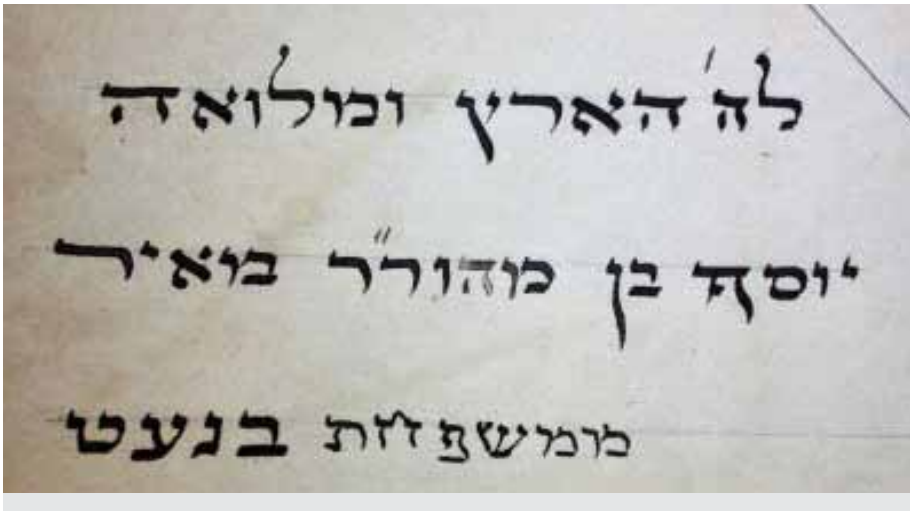 לה' הארץ ומלואה
יוסף בן מהור״ר מאיר
ממשפחת בנעט